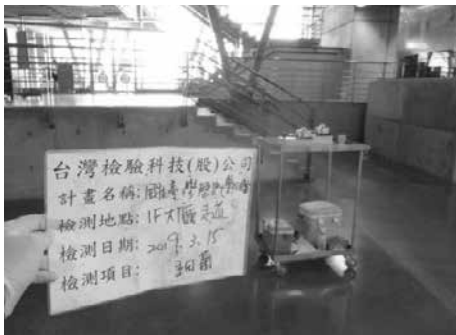 台灣檢驗科技(股)公司
計畫名稱:
檢測地點: 1F大廳走道
檢測日期: 2019. 3. 15
檢測項目: 細菌